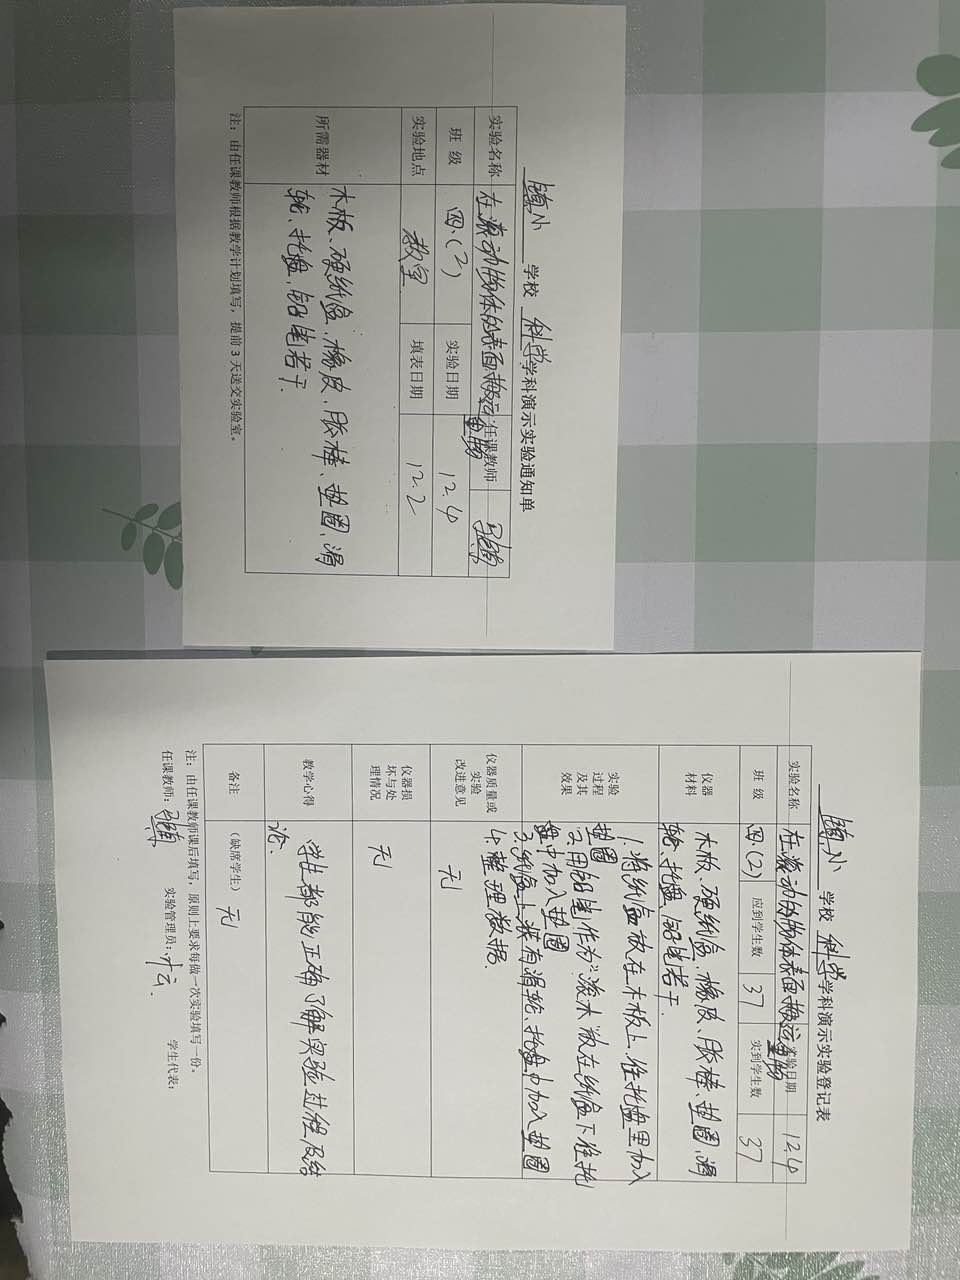 镇小 学校 科学 学科演示实验通知单
实验名称 在滚动物体的表面搬运重物 任课教师
班 级 四.(2) 实验日期 12.4
实验地点 教室 填表日期 12.2
所需器材 木板、硬纸盒、橡皮、胶棒、垫圈、滑
轮、托盘、铅笔若干.
注：由任课教师根据教学计划填写，提前 3 天送交实验室。
镇小 学校 科学 学科演示实验登记表
实验名称 在滚动的物体表面搬运重物 实验日期 12.4
班 级 四.(2) 应到学生数 37 实到学生数 37
仪器
材料
木板、硬纸盒、橡皮、胶棒、垫圈、滑
轮、托盘、铅笔若干
实验
过程
及其
效果
1.将纸盒放在木板上,往托盘里加入
垫圈
2.用铅笔作为"滚木"放在纸盒下往托
盘中加入垫圈
3.纸盒上装有滑轮、托盘中加入垫圈
4.整理数据.
仪器质量或
实验
改进意见
无
仪器损
坏与处
理情况
无
教学心得 学生都能正确了解实验过程及结
论.
备注 （缺席学生） 无
注：由任课教师课后填写，原则上要求每做一次实验填写一份。
任课教师： 实验管理员： 学生代表：